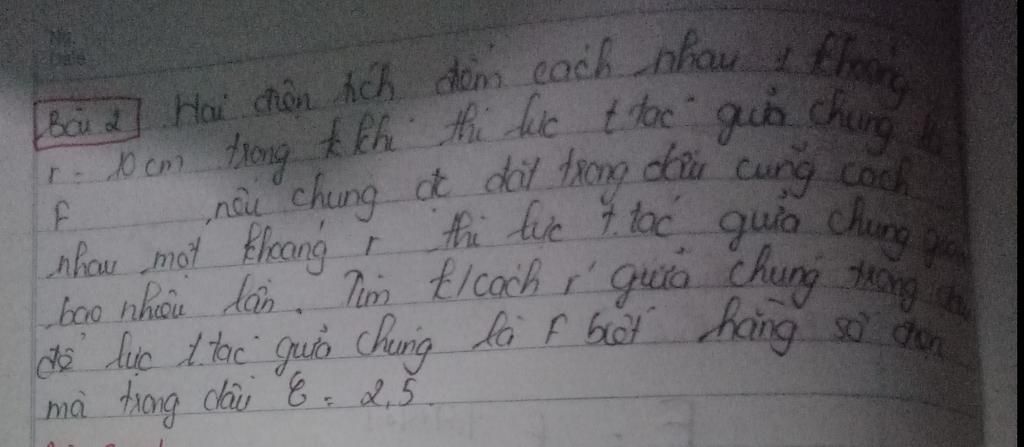 Bài 2 Hai điện tích điểm cách nhau 1 khoảng
r = 10cm trong k khí thì lực t tác giữa chúng là
F , nếu chúng đc đặt trong dầu cũng cách
nhau một khoảng r thì lực t.tác giữa chúng giảm
bao nhiêu lần. Tìm k/cách r' giữa chúng trong dầu
để lực t.tác giữa chúng là F biết hằng số điện
môi trong dầu ε = 2,5.